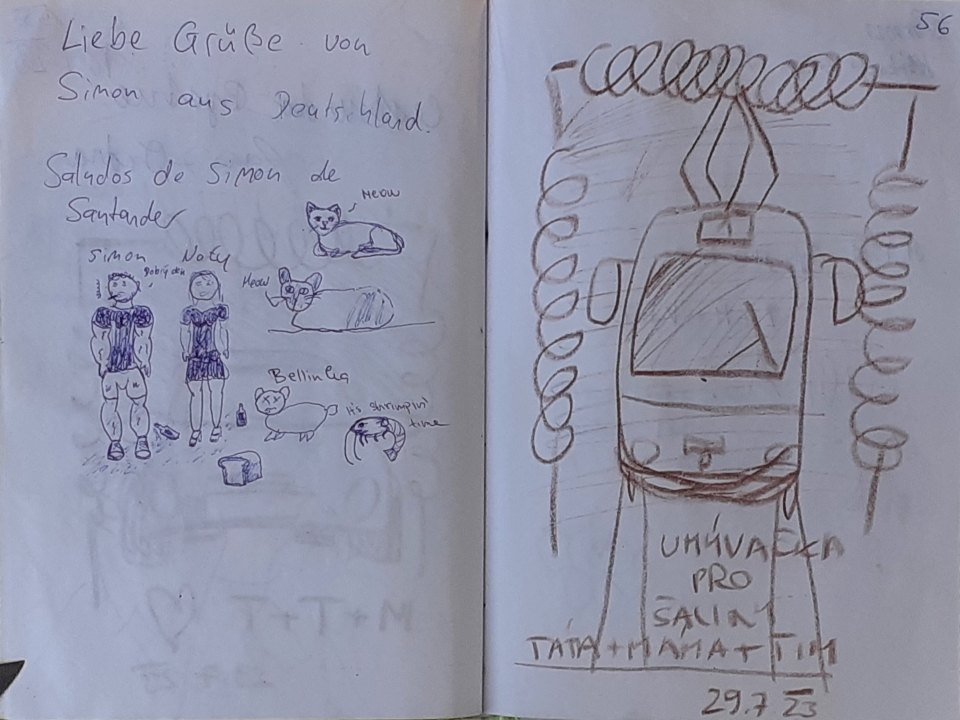 Liebe Grüße von
Simon aus Deutschland.
Saludos de Simon de
Santander
Meow
Simon Naty
dobrý den
Meow
Bellinka
it's shrimpin'
time
56
UMÝVAČKA
PRO
ŠALINY
TÁTA+MÁMA+TIM
29.7 23
M+T+T